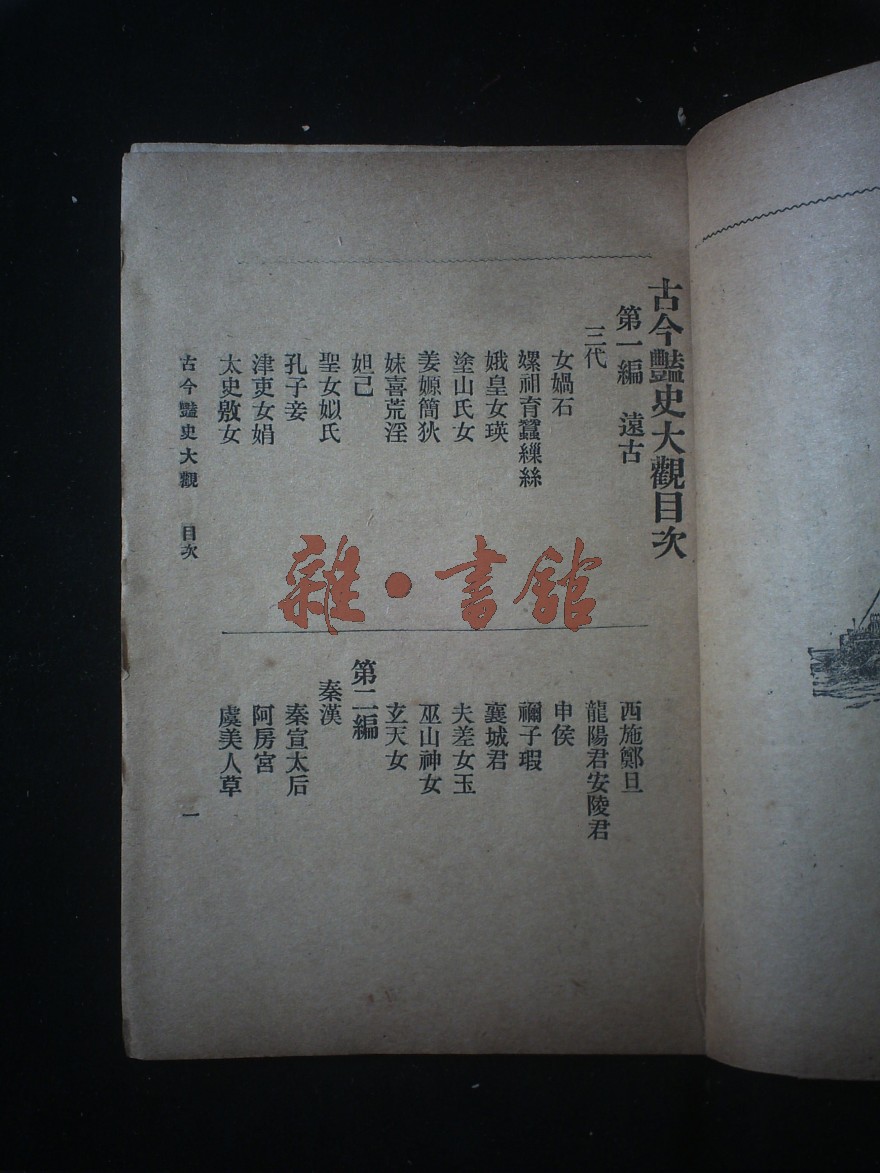 古今豔史大觀目次
第一編　遠古
三代
女媧石
嫘祖育蠶繅絲
娥皇女瑛
塗山氏女
姜嫄簡狄
妺喜荒淫
妲己
聖女姒氏
孔子妾
津吏女娟
太史敫女
西施鄭旦
龍陽君安陵君
申侯
禰子瑕
襄城君
夫差女玉
巫山神女
玄天女
第二編
秦漢
秦宣太后
阿房宮
虞美人草
古今豔史大觀　目次　一
雜・書館